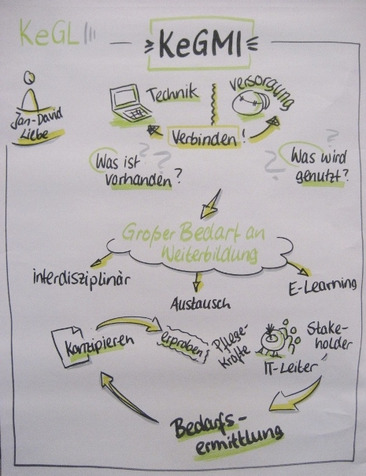 KeGL
KeGMI
Jan-David
Liebe
Technik
Versorgung
Verbinden!
Was ist
vorhanden?
Was wird
genutzt?
Großer Bedarf an
Weiterbildung
interdisziplinär
Austausch
E-Learning
Konzipieren
erproben
Pflege-
Kräfte
Stake-
holder
IT-Leiter
Bedarfs-
ermittlung